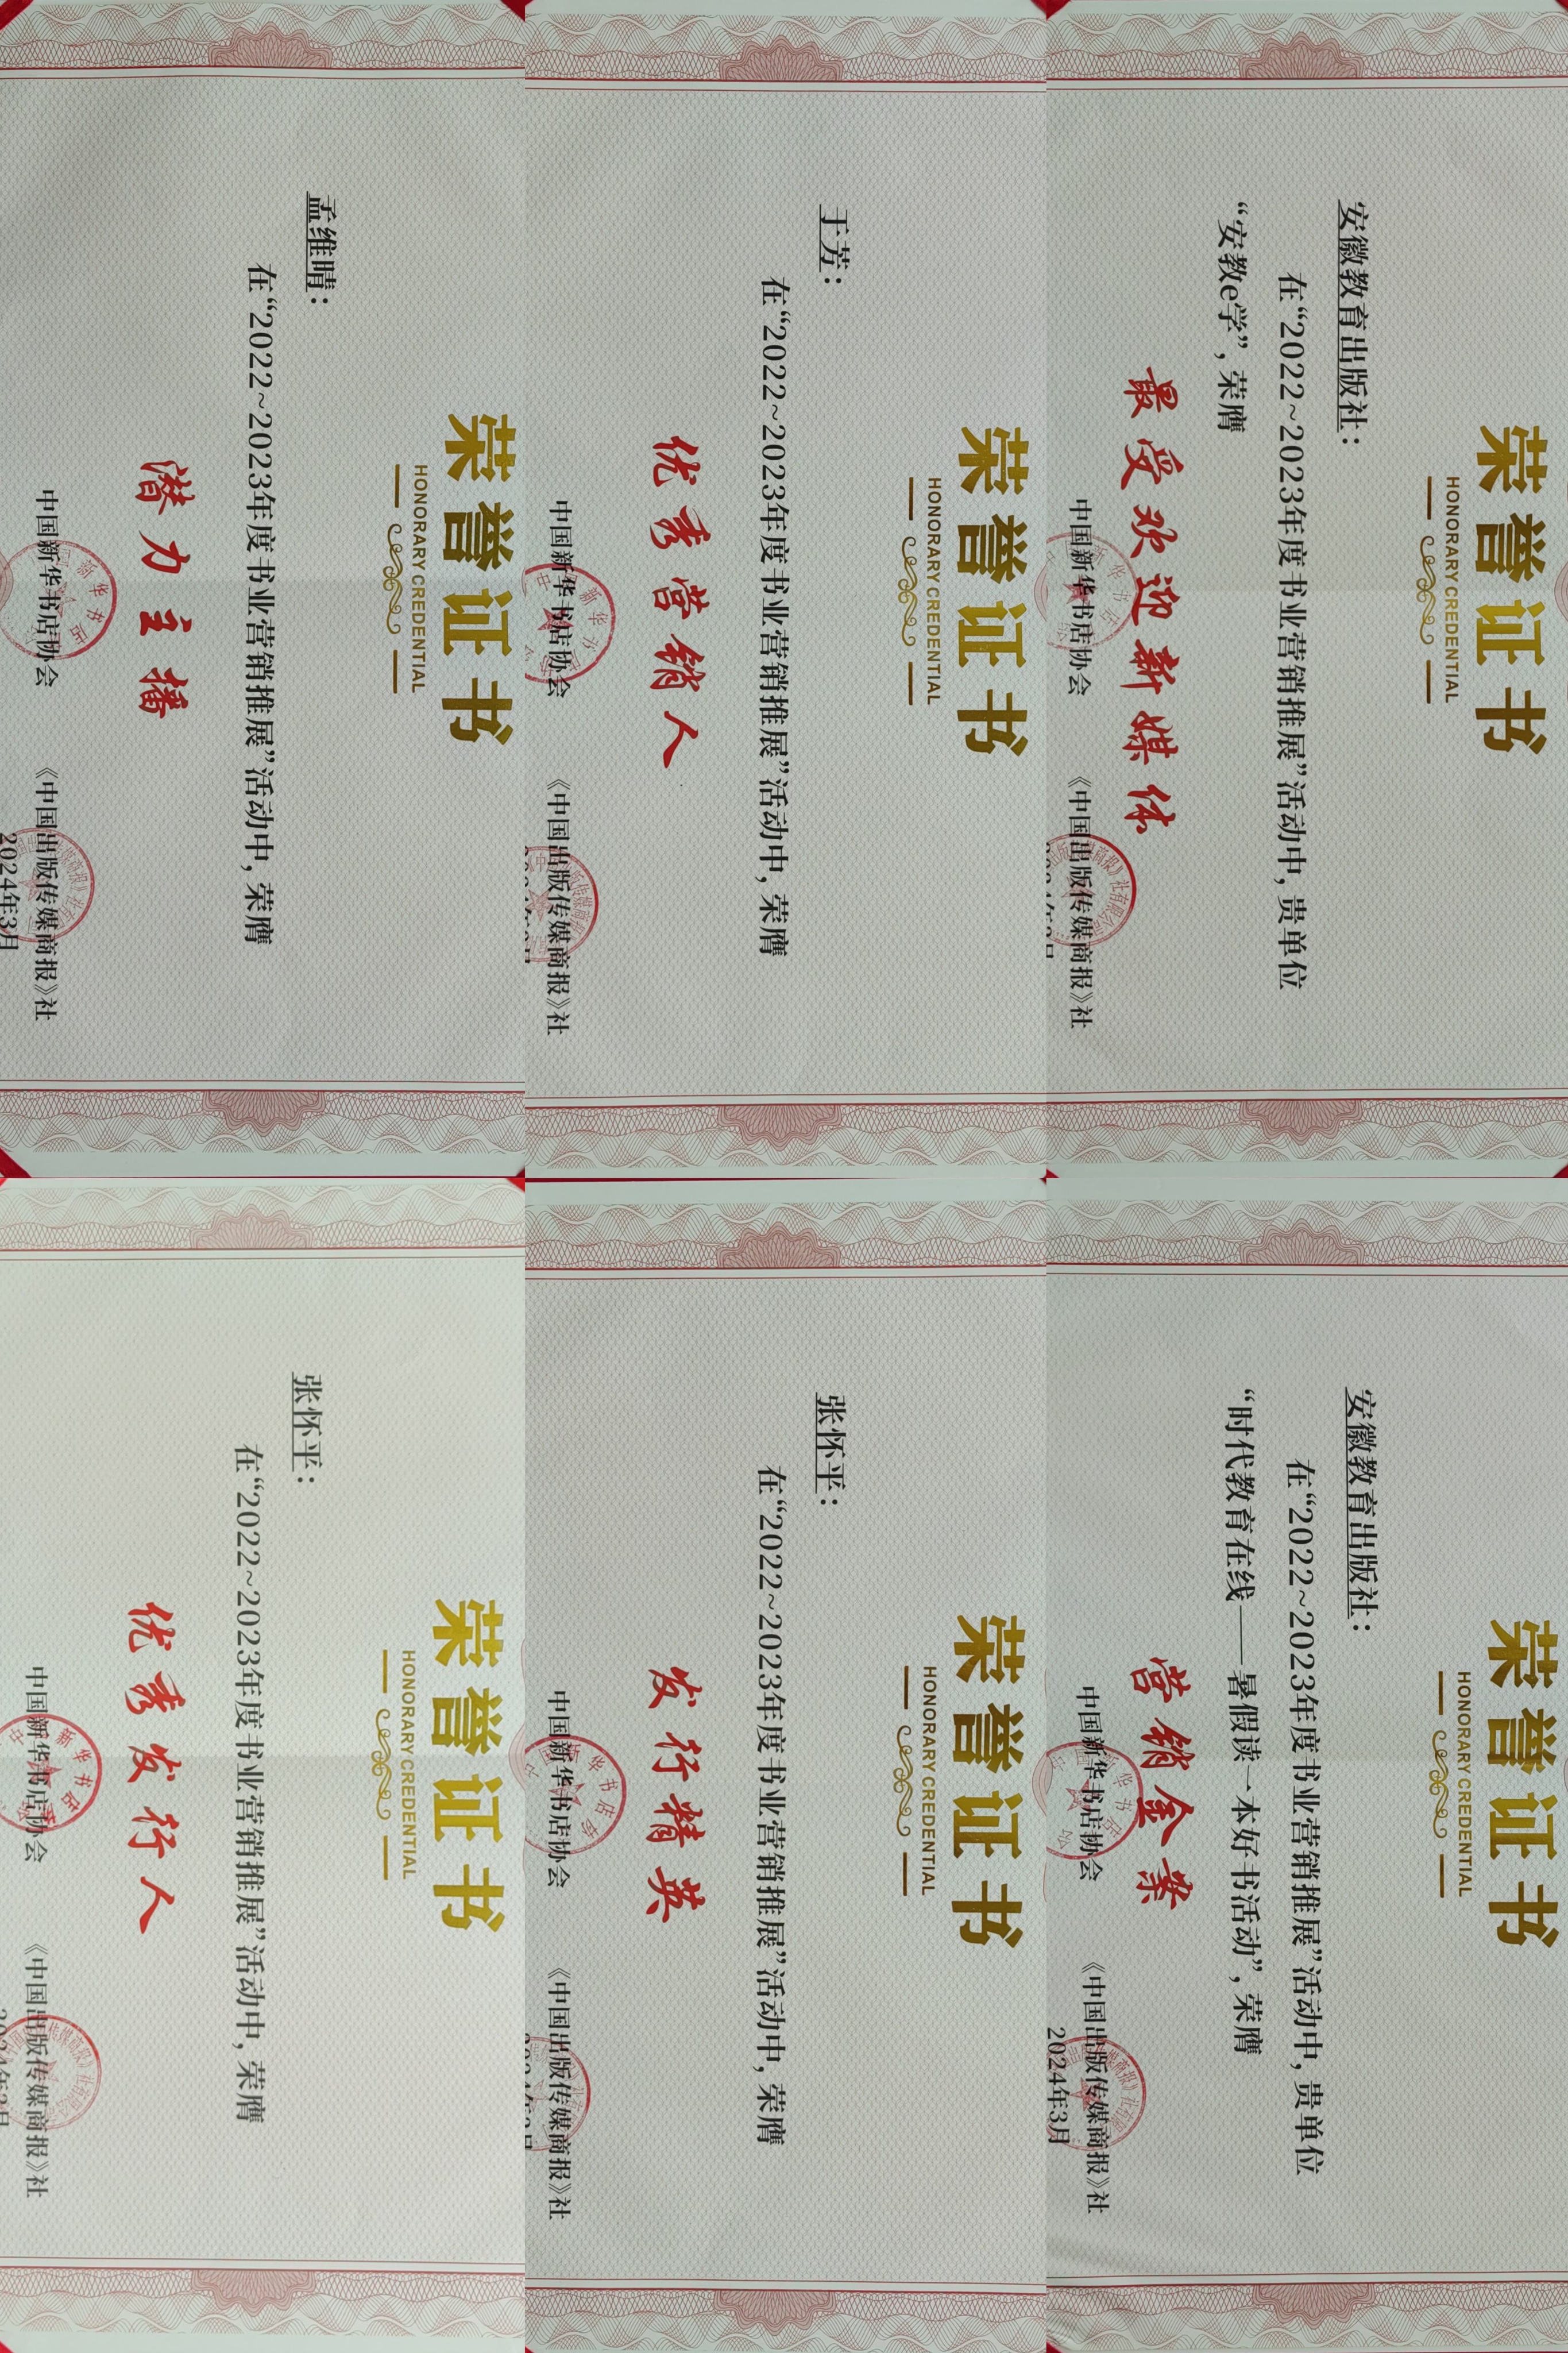 荣誉证书
HONORARY CREDENTIAL
安徽教育出版社：
在“2022~2023年度书业营销推展”活动中，贵单位
“安教e学”，荣膺
最受欢迎新媒体
中国新华书店协会 《中国出版传媒商报》社
荣誉证书
HONORARY CREDENTIAL
安徽教育出版社：
在“2022~2023年度书业营销推展”活动中，贵单位
“时代教育在线——暑假读一本好书活动”，荣膺
营销金案
中国新华书店协会 《中国出版传媒商报》社
2024年3月
荣誉证书
HONORARY CREDENTIAL
于芳：
在“2022~2023年度书业营销推展”活动中，荣膺
优秀营销人
中国新华书店协会 《中国出版传媒商报》社
荣誉证书
HONORARY CREDENTIAL
张怀平：
在“2022~2023年度书业营销推展”活动中，荣膺
发行精英
中国新华书店协会 《中国出版传媒商报》社
荣誉证书
HONORARY CREDENTIAL
孟维晴：
在“2022~2023年度书业营销推展”活动中，荣膺
潜力主播
中国新华书店协会 《中国出版传媒商报》社
2024年3月
荣誉证书
HONORARY CREDENTIAL
张怀平：
在“2022~2023年度书业营销推展”活动中，荣膺
优秀发行人
中国新华书店协会 《中国出版传媒商报》社